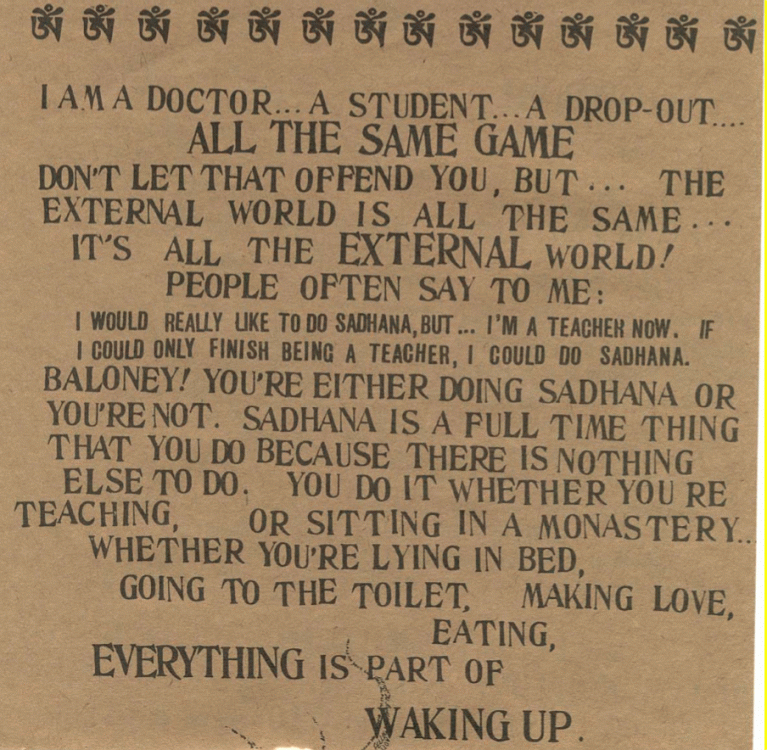 ༀ ༀ ༀ ༀ ༀ ༀ ༀ ༀ ༀ ༀ ༀ ༀ ༀ ༀ
I AM A DOCTOR... A STUDENT... A DROP-OUT....
ALL THE SAME GAME
DON'T LET THAT OFFEND YOU, BUT... THE
EXTERNAL WORLD IS ALL THE SAME...
IT'S ALL THE EXTERNAL WORLD!
PEOPLE OFTEN SAY TO ME:
I WOULD REALLY LIKE TO DO SADHANA, BUT... I'M A TEACHER NOW. IF
I COULD ONLY FINISH BEING A TEACHER, I COULD DO SADHANA.
BALONEY! YOU'RE EITHER DOING SADHANA OR
YOU'RE NOT. SADHANA IS A FULL TIME THING
THAT YOU DO BECAUSE THERE IS NOTHING
ELSE TO DO. YOU DO IT WHETHER YOU RE
TEACHING, OR SITTING IN A MONASTERY...
WHETHER YOU'RE LYING IN BED,
GOING TO THE TOILET, MAKING LOVE,
EATING,
EVERYTHING IS PART OF
WAKING UP.